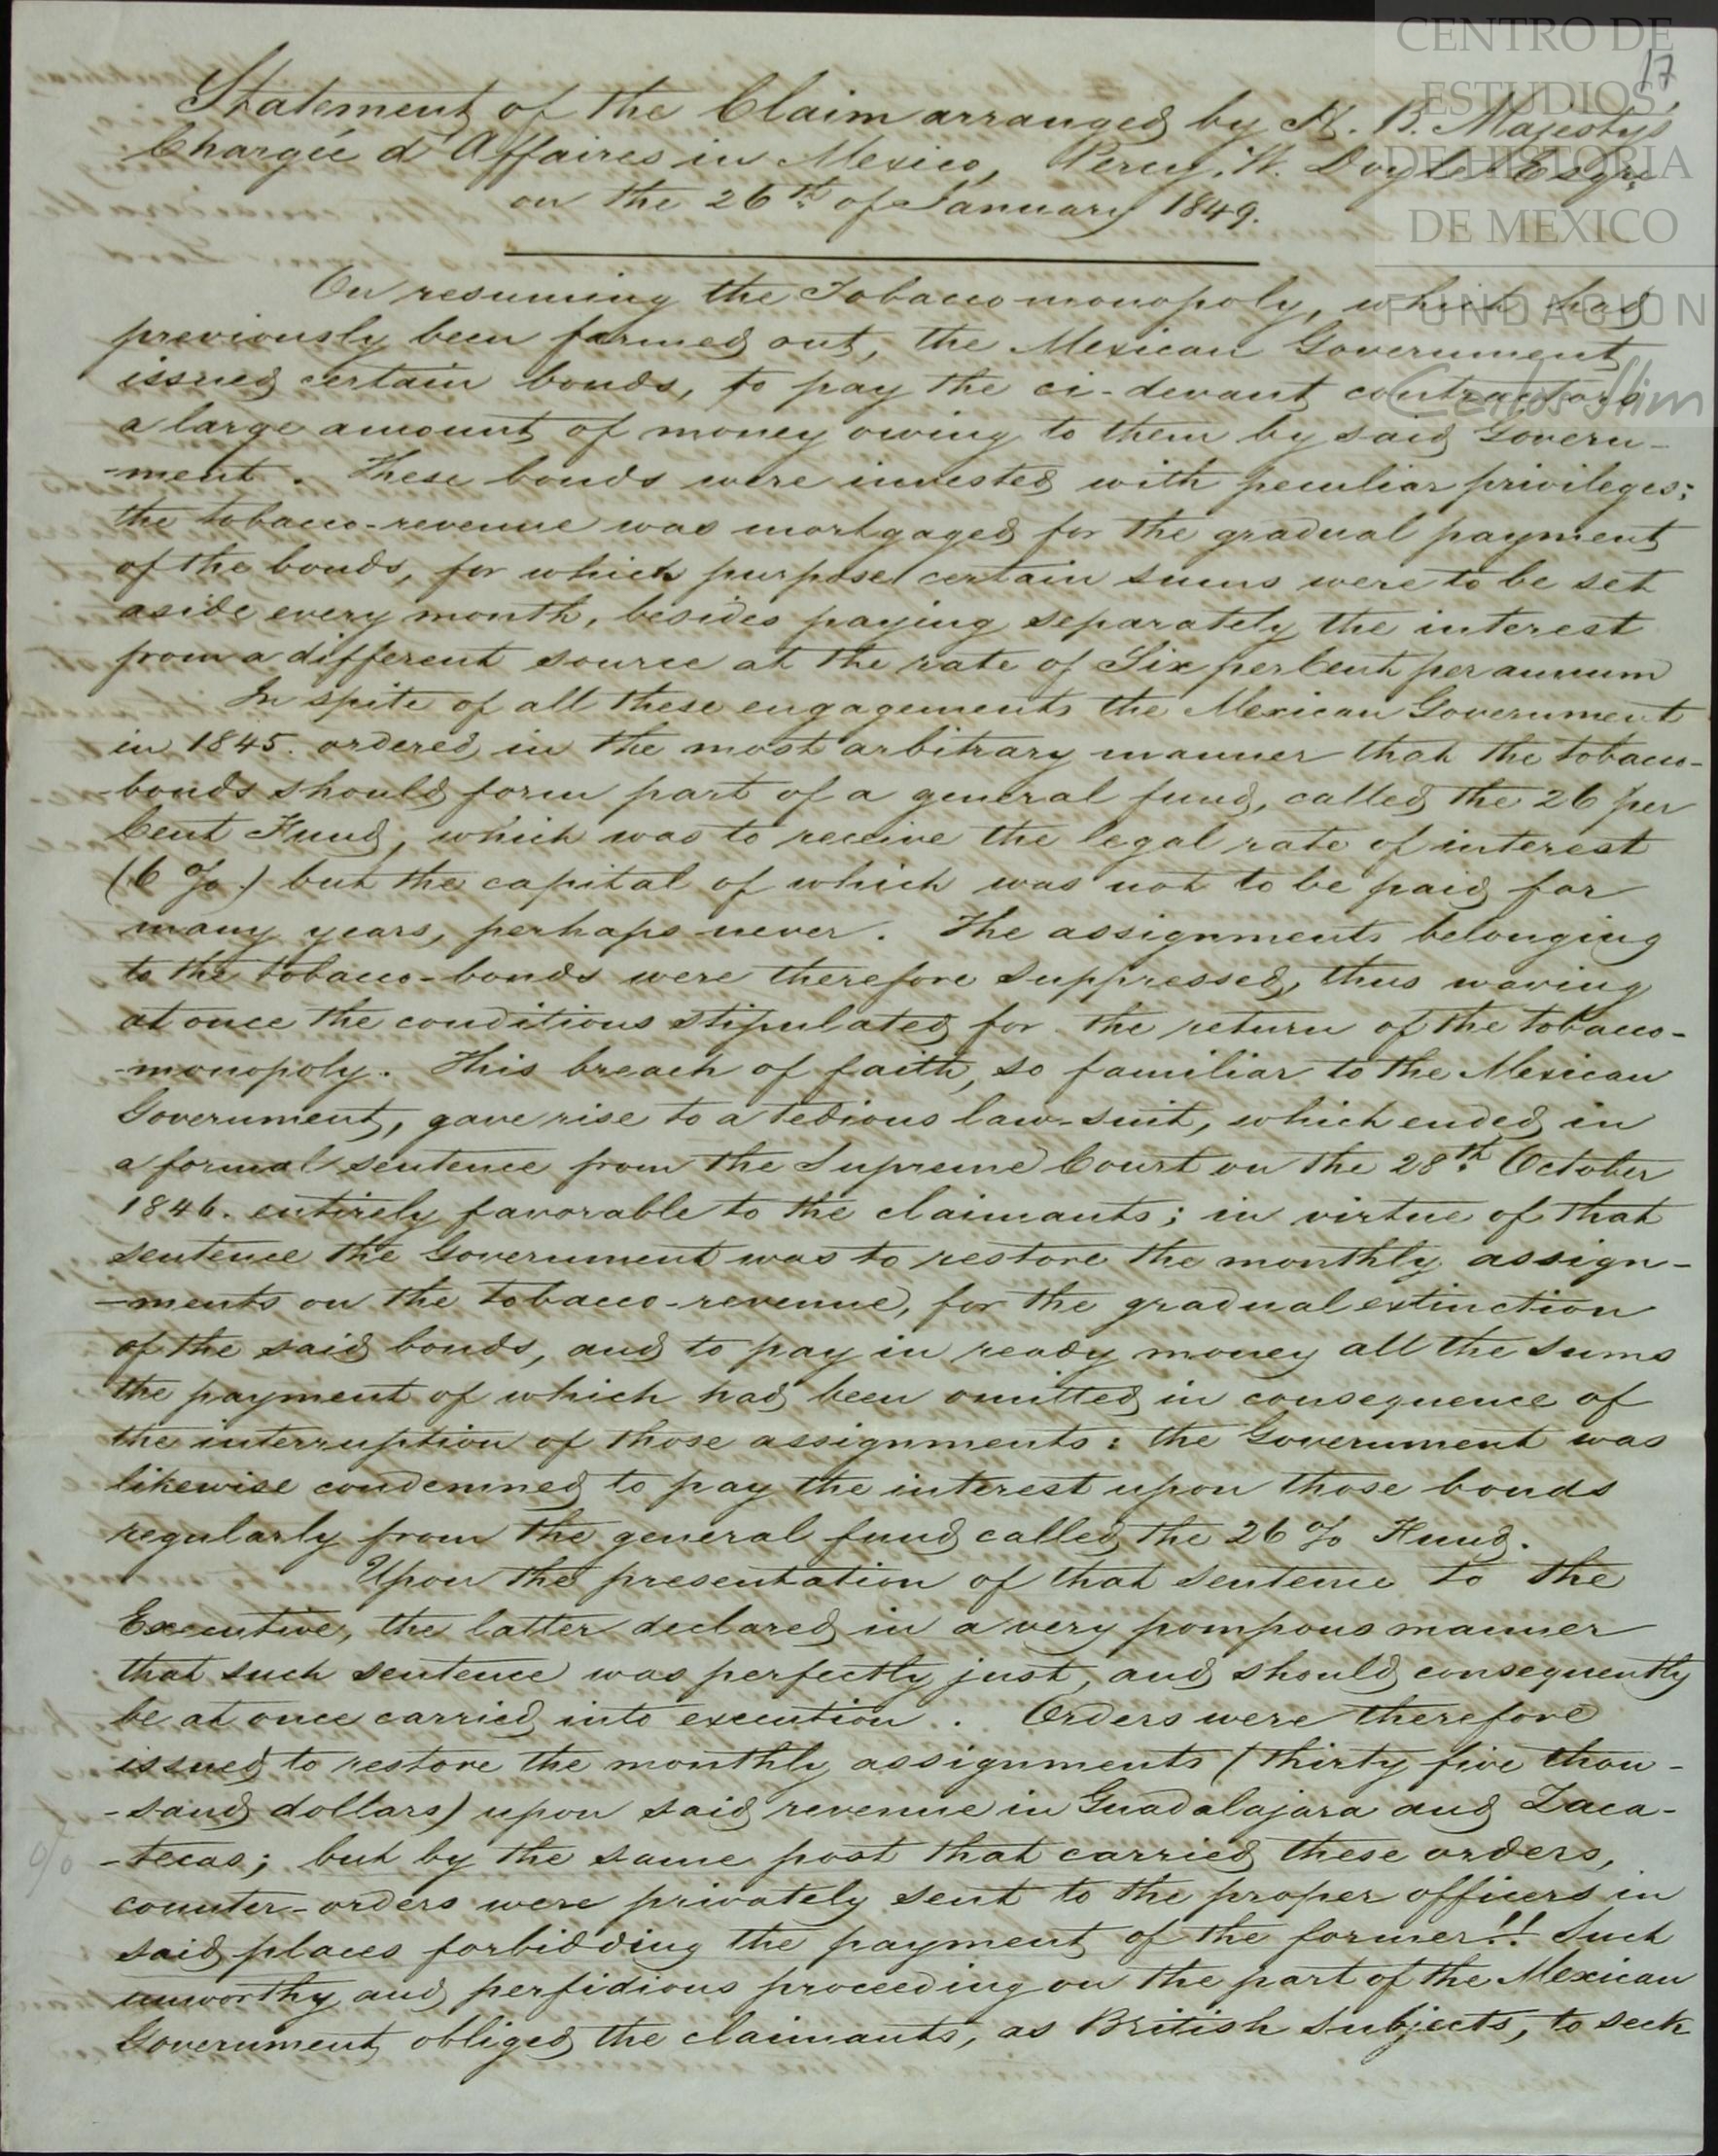 CENTRO DE
ESTUDIOS
DE HISTORIA
DE MEXICO
FUNDACION
Carlos Slim
17
Statement of the Claim arranged by H. B. Majestys
Chargée d'Affaires in Mexico, Percy. W. Doyle Esqre
on the 26th of January 1849.
On resuming the Tobacco monopoly, which had
previously been farmed out, the Mexican Government
issued certain bonds, to pay the ci-devant contractors
a large amount of money owing to them by said Govern-
-ment. These bonds were invested with peculiar privileges:
the tobacco-revenue was mortgaged for the gradual payment
of the bonds, for which purpose certain sums were to be set
aside every month, besides paying separately the interest
from a different source at the rate of Six per Cent per annum
In spite of all these engagements the Mexican Government
in 1845. ordered in the most arbitrary manner that the tobacco-
-bonds should form part of a general fund, called the 26 per
Cent Fund, which was to receive the legal rate of interest
(6 %) but the capital of which was not to be paid for
many years, perhaps never. The assignments belonging
to the tobacco-bonds were therefore suppressed, thus waving
at once the conditions stipulated for the return of the tobacco-
-monopoly. This breach of faith, so familiar to the Mexican
Government, gave rise to a tedious law-suit, which ended in
a formal sentence from the Supreme Court on the 28th October
1846. entirely favorable to the claimants; in virtue of that
sentence the Government was to restore the monthly assign-
-ments on the tobacco-revenue, for the gradual extinction
of the said bonds, and to pay in ready money all the sums
the payment of which had been omitted in consequence of
the interruption of those assignments: the Government was
likewise condemned to pay the interest upon those bonds
regularly from the general fund called the 26 % Fund.
Upon the presentation of that sentence to the
Executive, the latter declared in a very pompous manner
that such sentence was perfectly just, and should consequently
be at once carried into execution. Orders were therefore
issued to restore the monthly assignments (thirty five thou-
-sand dollars) upon said revenue in Guadalajara and Zaca-
-tecas; but by the same post that carried these orders,
counter-orders were privately sent to the proper officers in
said places forbidding the payment of the former!! Such
unworthy and perfidious proceeding on the part of the Mexican
Government obliged the claimants, as British Subjects, to seek